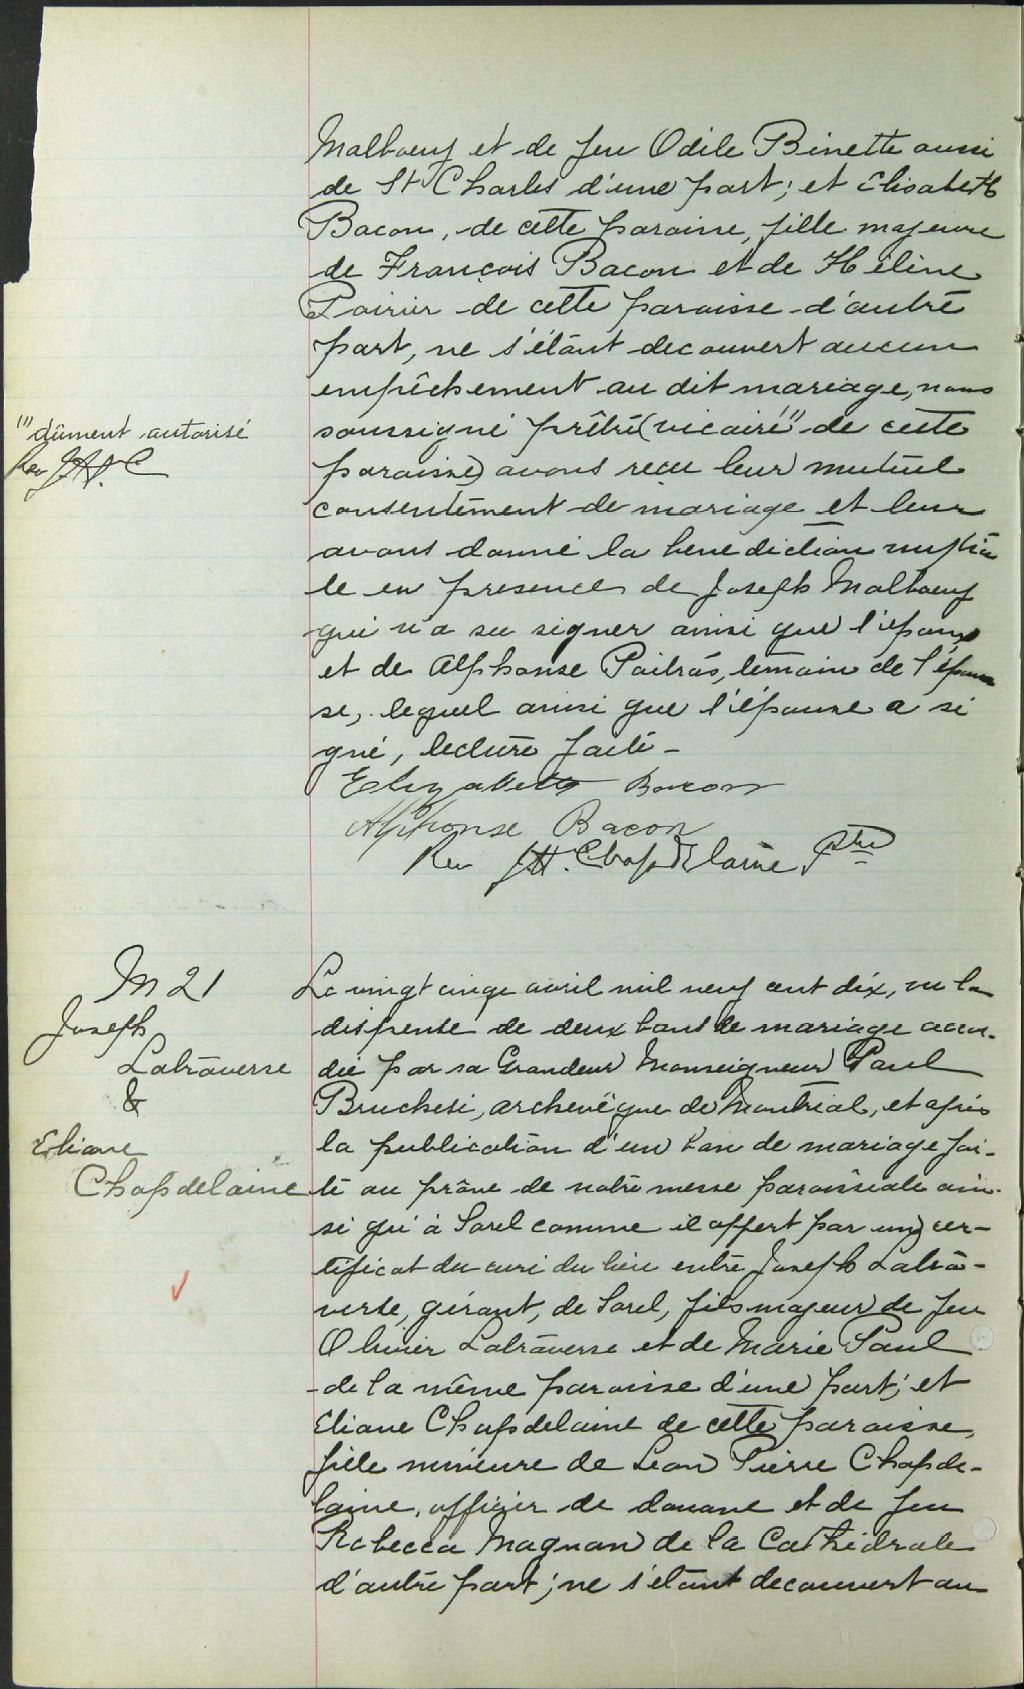 Malboeuf et de feu Odile Binette aussi
de St Charles d'une part; et Elisabeth
Bacon, de cette paroisse, fille majeure
de François Bacon et de Hélène
Poirier de cette paroisse d'autre
part, ne s'étant decouvert aucun
empêchement au dit mariage, nous
soussigné prêtre (vicaire''' de cette
paroisse) avons reçu leur mutuel
consentement de mariage et leur
avons donné la benediction nuptia
le en presence de Joseph Malboeuf
qui n'a su signer ainsi que l'époux
et de Alphonse Poitras, temoin de l'épou
se, lequel ainsi que l'épouse a si
gné, lecture faite -
'''dûment autorisé
Rev J.H. C
Elizabeth Bacon
Alphonse Bacon
Rev J.H. Chapdelaine Ptre
M 21
Joseph
Latraverse
&
Eliane
Chapdelaine
Le vingt cinq avril mil neuf cent dix, vu la
dispense de deux bans de mariage accor-
dée par sa Grandeur Monseigneur Paul
Bruchesi, archevêque de Montréal, et après
la publication d'un ban de mariage fai-
te au prône de notre messe paroissiale ain-
si qu'à Sorel comme il appert par un cer-
tificat du curé du lieu entre Joseph Latra-
verse, gérant, de Sorel, fils majeur de feu
Olivier Latraverse et de Marie Paul
de la même paroisse d'une part; et
Eliane Chapdelaine de cette paroisse,
fille mineure de Leon Pierre Chapde-
laine, officier de douane et de feu
Rebecca Magnan de la Cathédrale
d'autre part; ne s'étant decouvert au